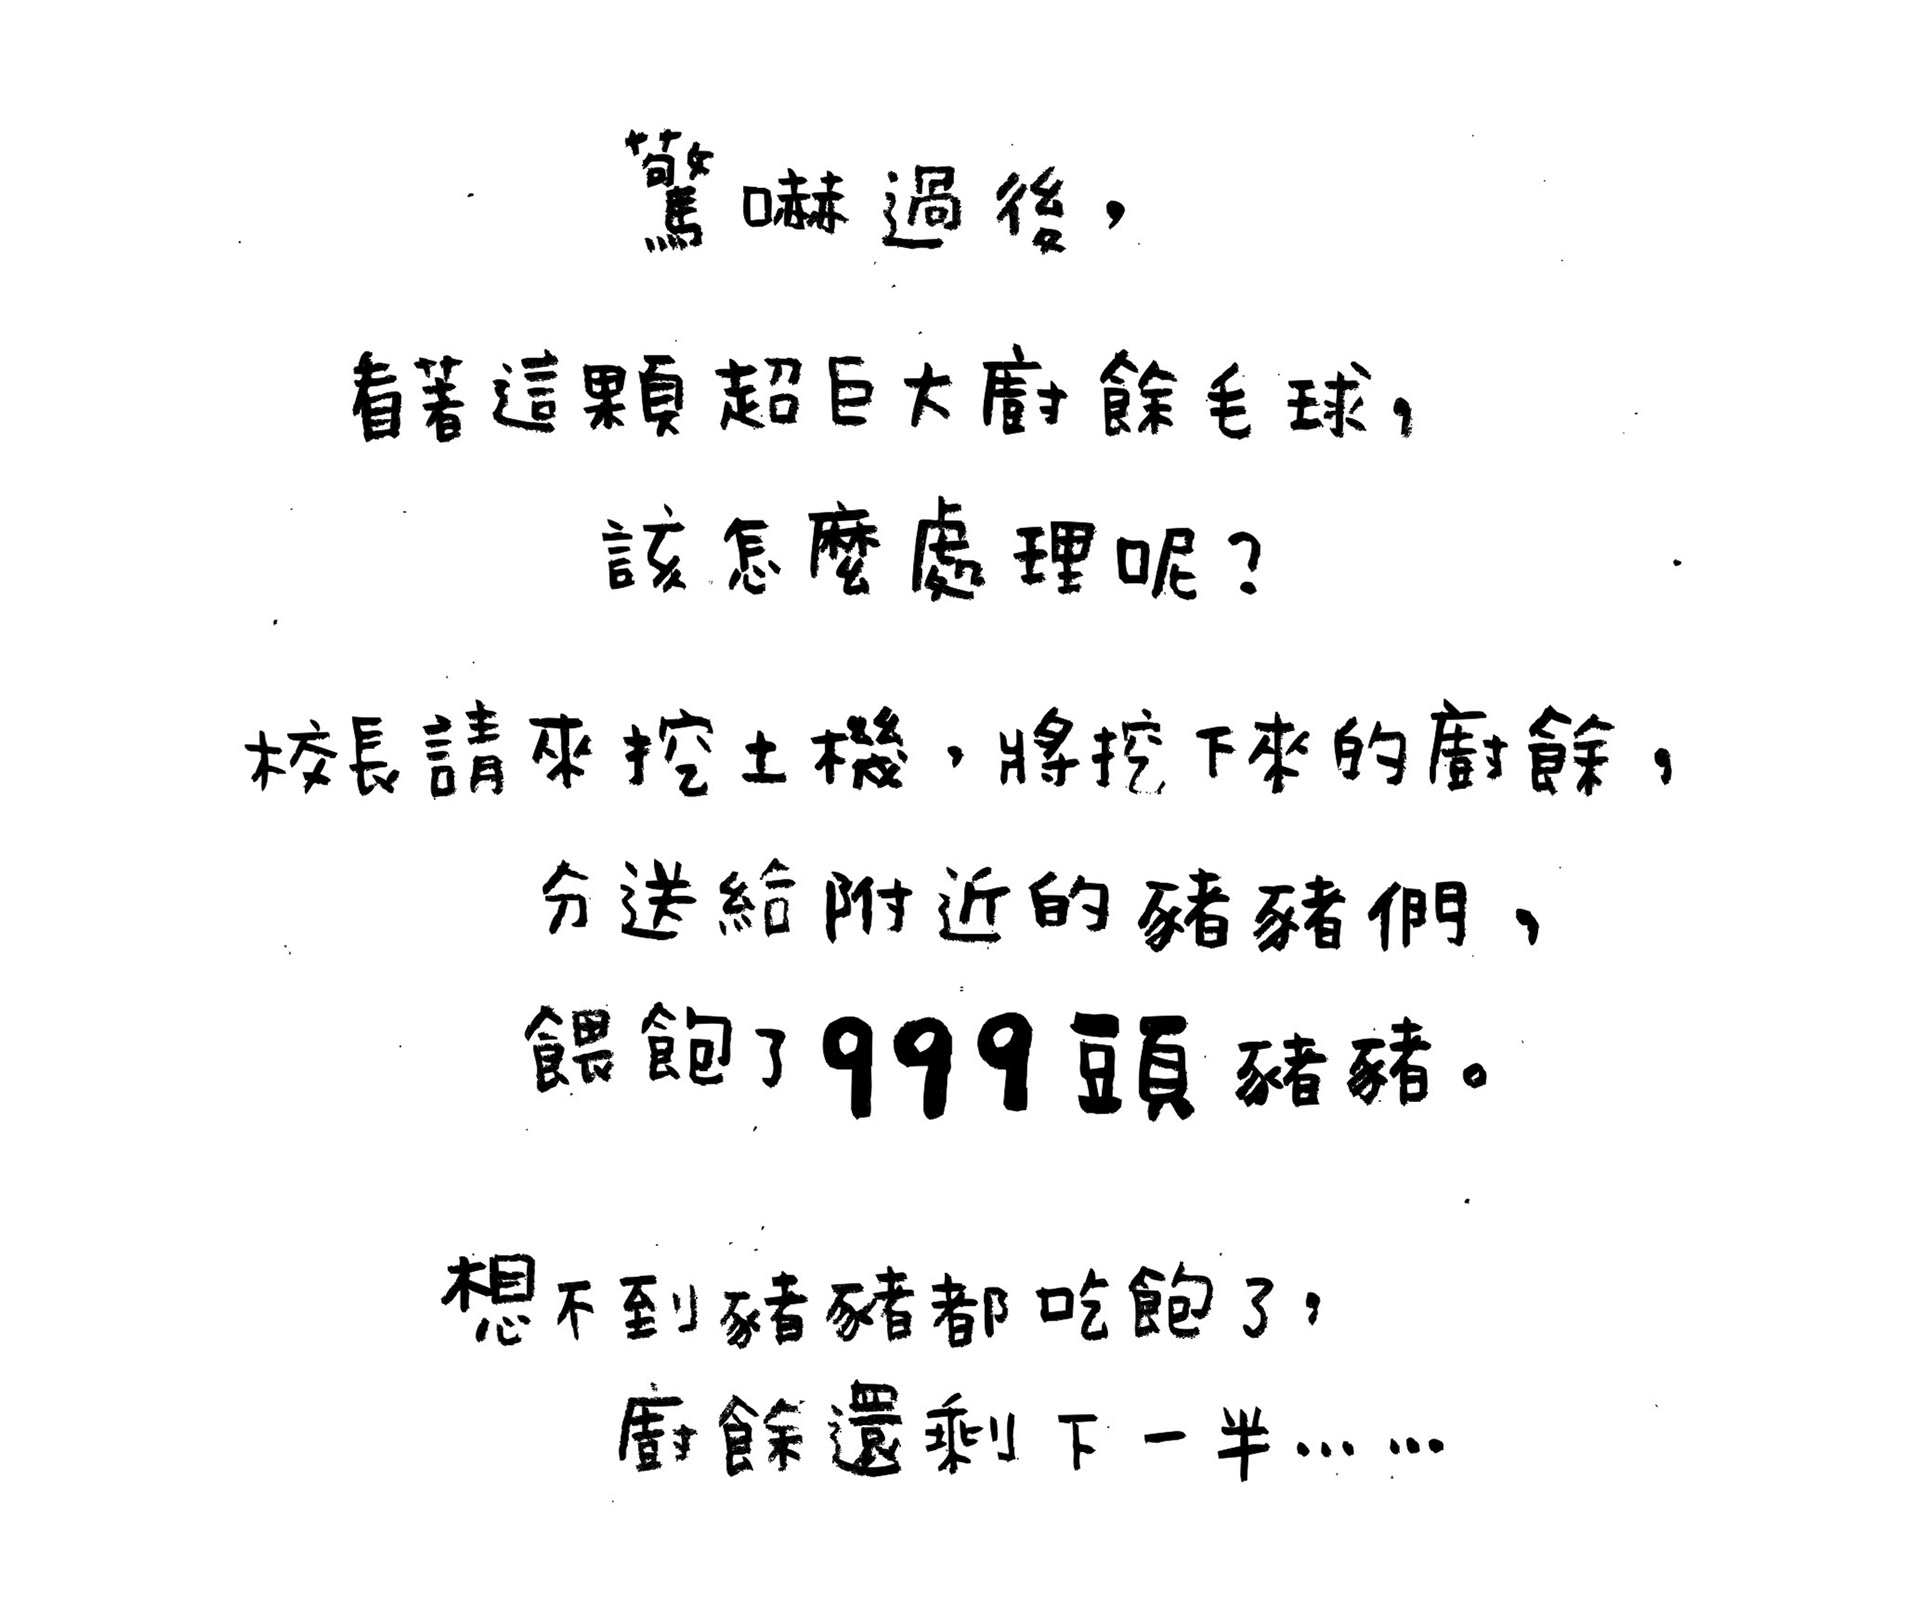 驚嚇過後，
看著這顆超巨大廚餘毛球，
該怎麼處理呢？
校長請來挖土機，將挖下來的廚餘，
分送給附近的豬豬們，
餵飽了999頭豬豬。
想不到豬豬都吃飽了，
廚餘還剩下一半……